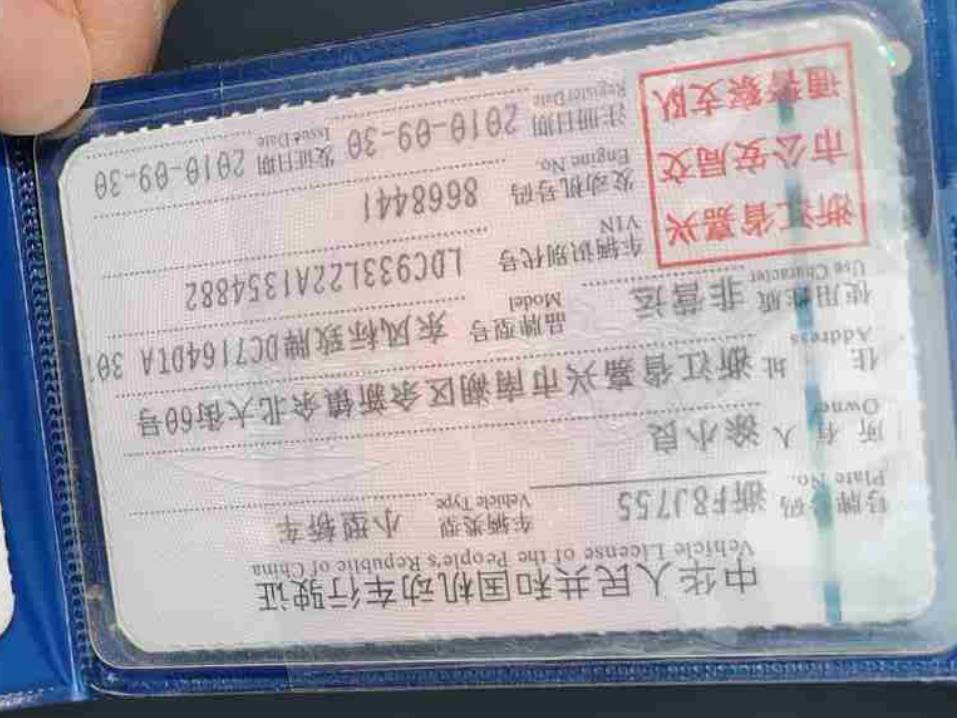 中华人民共和国机动车行驶证
Vehicle License of the People's Republic of China
号牌号码 浙F8J755 车辆类型 小型轿车
Plate No. Vehicle Type
所有人 涂小良
Owner
住址 浙江省嘉兴市南湖区余新镇余北大街60号
Address
使用性质 非营运 品牌型号 东风标致牌DC7164DTA 307
Use Character Model
浙江省嘉兴
市公安局交
通警察支队
车辆识别代号 LDC933L22A1354882
VIN
发动机号码 8668441
Engine No.
注册日期 2010-09-30 发证日期 2010-09-30
Register Date Issue Date